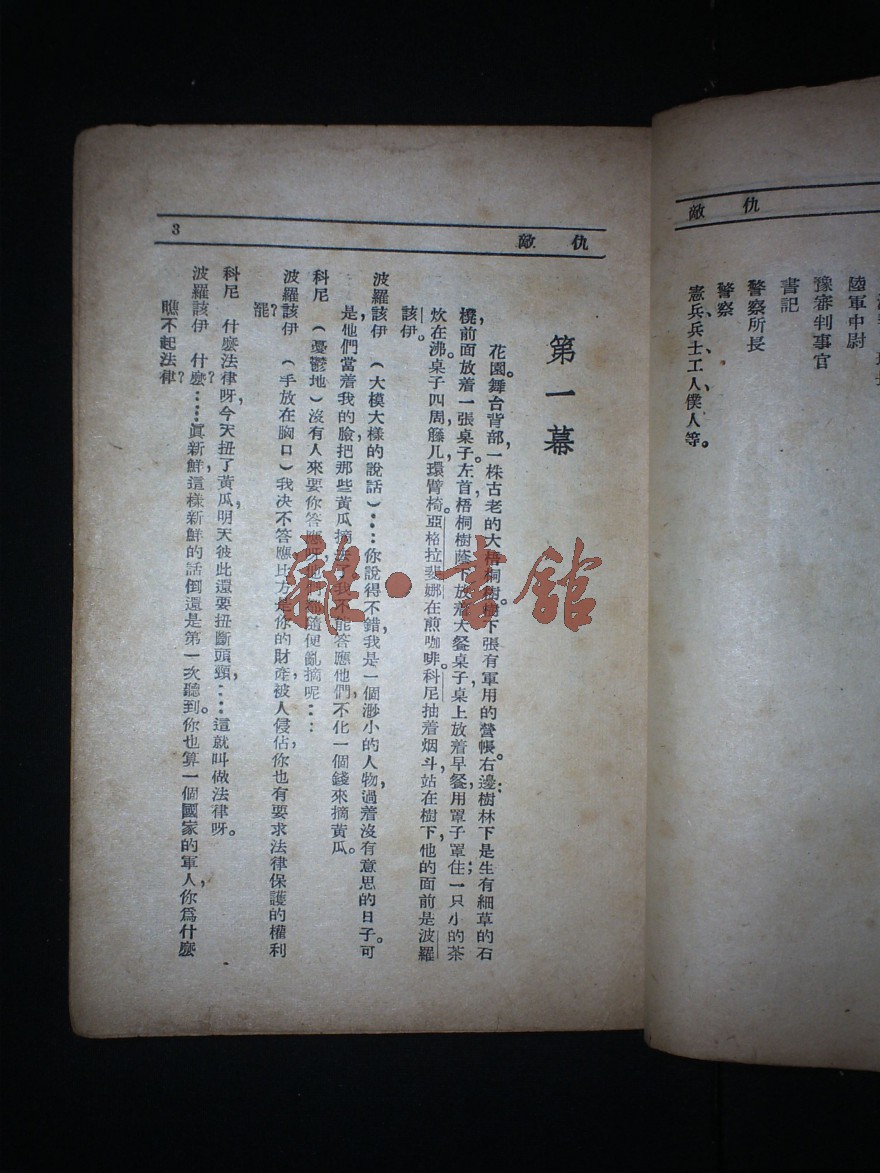 仇敵
陸軍中尉
豫審判事官
書記
警察所長
警察
憲兵、兵士、工人、僕人等。
仇敵
3
第一幕
花園。舞台背部，一株古老的大梧桐樹。樹下張有軍用的營帳。右邊：樹林下是生有細草的石
櫈，前面放着一張桌子。左首，梧桐樹蔭，放着大餐桌子，桌上放着早餐，用罩子罩住；一只小的茶
炊在沸。桌子四周，籐儿環臂椅。亞格拉斐娜在煎咖啡。科尼抽着烟斗，站在樹下，他的面前是波羅
該伊。
波羅該伊 （大模大樣的說話）……你說得不錯，我是一個渺小的人物，過着沒有意思的日子。可
是，他們當着我的臉，把那些黃瓜摘去了，我不能答應他們不化一個錢來摘黃瓜。
科尼 （憂鬱地）沒有人來要你答應呀，他們都隨便亂摘呢……
波羅該伊 （手放在胸口）我決不答應，比方是你的財產被人侵佔，你也有要求法律保護的權利
罷？
科尼 什麽法律呀，今天扭了黃瓜，明天彼此還要扭斷頭頸，……這就叫做法律呀。
波羅該伊 什麽？……眞新鮮，這樣新鮮的話倒還是第一次聽到。你也算一個國家的軍人，你爲什麽
瞧不起法律？
雜·書館